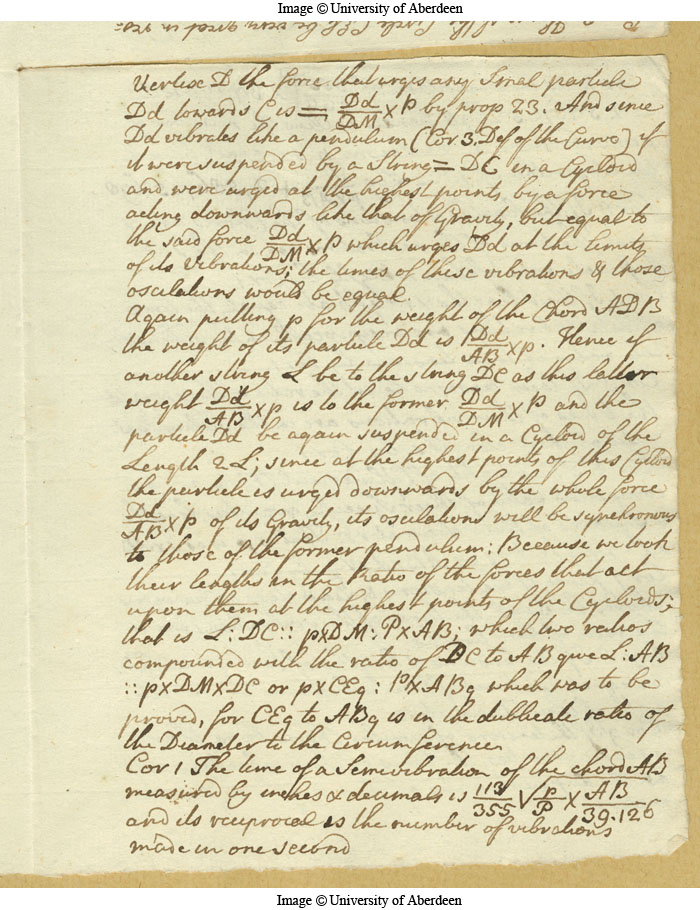 Image © University of Aberdeen
Vertex D the force that urges any Smal particle
Dd towards C is = Dd/DM × P by prop 23. And since
Dd vibrates like a pendulum (Cor 3. Def of the Curve) if
it were suspended by a String = DC in a Cycloid
and were urged at the highest points by a force
acting downwards like that of Gravity, but equal to
the said force Dd/DM × P which urges Dd at the limits
of its Vibrations; the times of these vibrations & those
oscilations would be equal.
Again putting p for the weight of the Chord ADB
the weight of its particle Dd is Dd/AB × p. Hence if
another string L be to the string DC as this latter
weight Dd/AB × p is to the former Dd/DM × P and the
particle Dd be again suspended in a Cycloid of the
Length 2 L; since at the highest points of this Cycloid
the particle is urged downwards by the whole force
Dd/AB × p of its Gravity, its oscilations will be synchronous
to those of the former pendulum: Beceause we took
their lengths in the Ratio of the forces that act
upon them at the highest points of the Cycloids;
that is L : DC :: p×DM : P×AB; which two ratios
compounded with the ratio of DC to AB give L : AB
:: p×DM×DC or p×CEq : P×ABq which was to be
proved, for CEq to ABq is in the dublicate ratio of
the Diameter to the Circumference
Cor 1 The time of a Semivibration of the chord AB
measured by inches & decimals is 113/355 √p/P × AB/39.126
and its reciprocal is the number of vibrations
made in one second
Image © University of Aberdeen